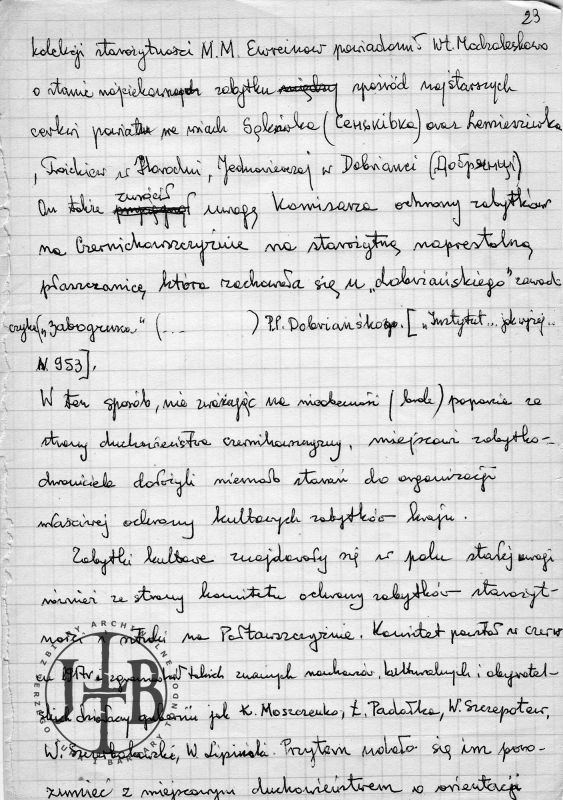 23
kolekcji starożytności M.M. Ewreinow powiadomił Wł. Modzalewskowo
o stanie najciekawszych zabytku między spośród najstarszych
cerkwi powiatu we wsiach Sękiwka (Сеньківка) oraz Lemieszówka
w Dobriance (Добрянці)
On także zwrócił uwagę Komisarza ochrony zabytków
na Czernichowszczyźnie na starożytną naprestolną
płaszczanicę która zachowała się u „dobriańskiego" zawad-
czyka („zabogruska" (... ) P.P. Dobriańskogo. [„Instytut... jak wyżej..
N. 953].
W ten sposób, nie zważając na nieobecność (brak) poparcia ze
strony duchowieństwa czernihowszczyzny, miejscowi zabytko-
chroniciele dołożyli niemało starań do organizacji
właściwej ochrony kultowych zabytków kraju.
Zabytki kultowe znajdowały się w polu stałej uwagi
również ze strony komitetu ochrony zabytków starożyt-
ności i sztuki na Połtawszczyźnie. Komitet powstał w czerw
cu 1917 r i zgromadził takich znanych naukowców, kulturalnych i obywatel-
skich działaczy guberni jak K. Moszczenko, Ł. Padałka, W. Szczepotew,
W. Szczerbakowski, W. Lipiński. Przytem udało się im poro-
zumieć z miejscowym duchowieństwem w orientacji
ZBIORY ARCHIWALNE
LONDON
BARBARY
TUS
JTB